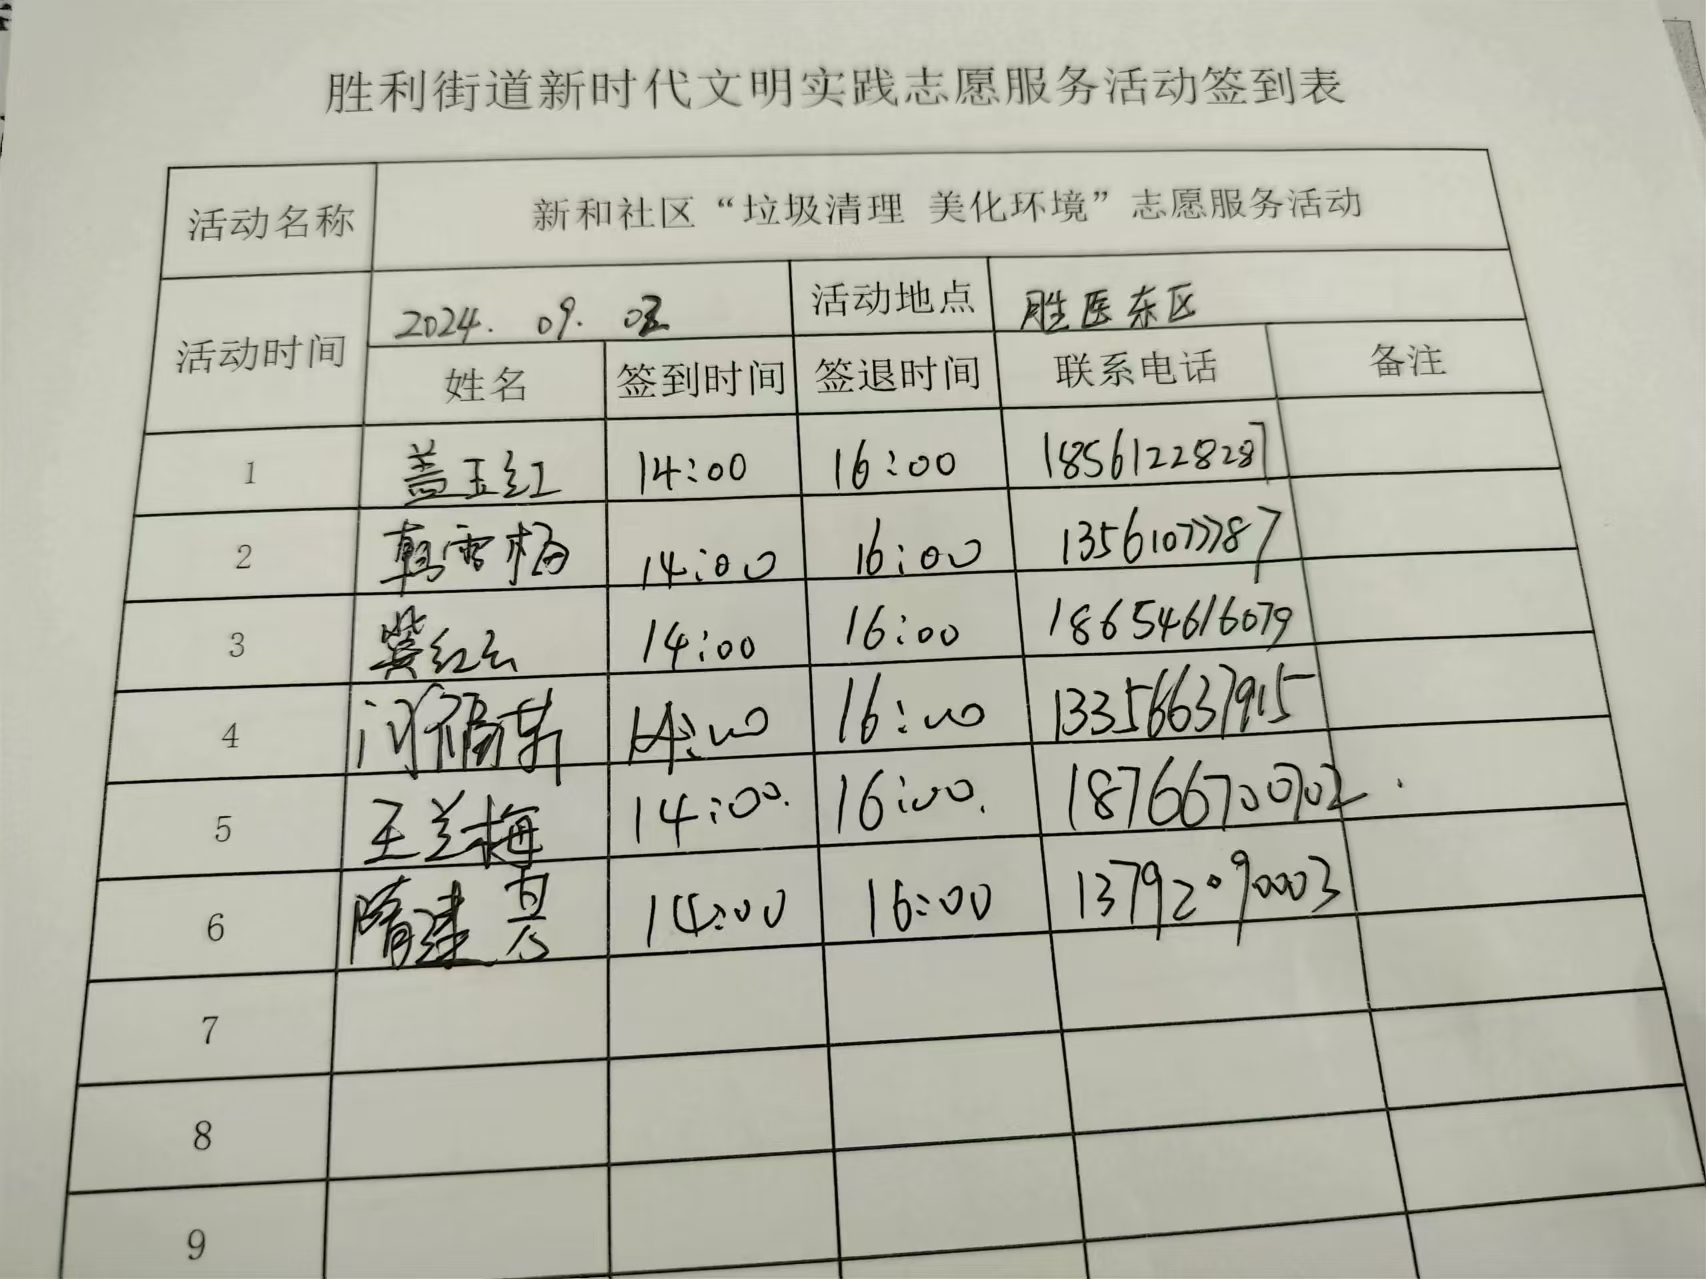 胜利街道新时代文明实践志愿服务活动签到表
活动名称 新和社区“垃圾清理 美化环境”志愿服务活动
活动时间 2024. 09. 活动地点 胜医东区
姓名 签到时间 签退时间 联系电话 备注
1 盖玉红 14:00 16:00 18561228287
2 韩雪梅 14:00 16:00 13561077787
3 冀红云 14:00 16:00 18654616079
4 14:00 16:00 13356637915
5 王兰梅 14:00. 16:00. 18766700702.
6 隋建 14:00 16:00 13792090003
7
8
9